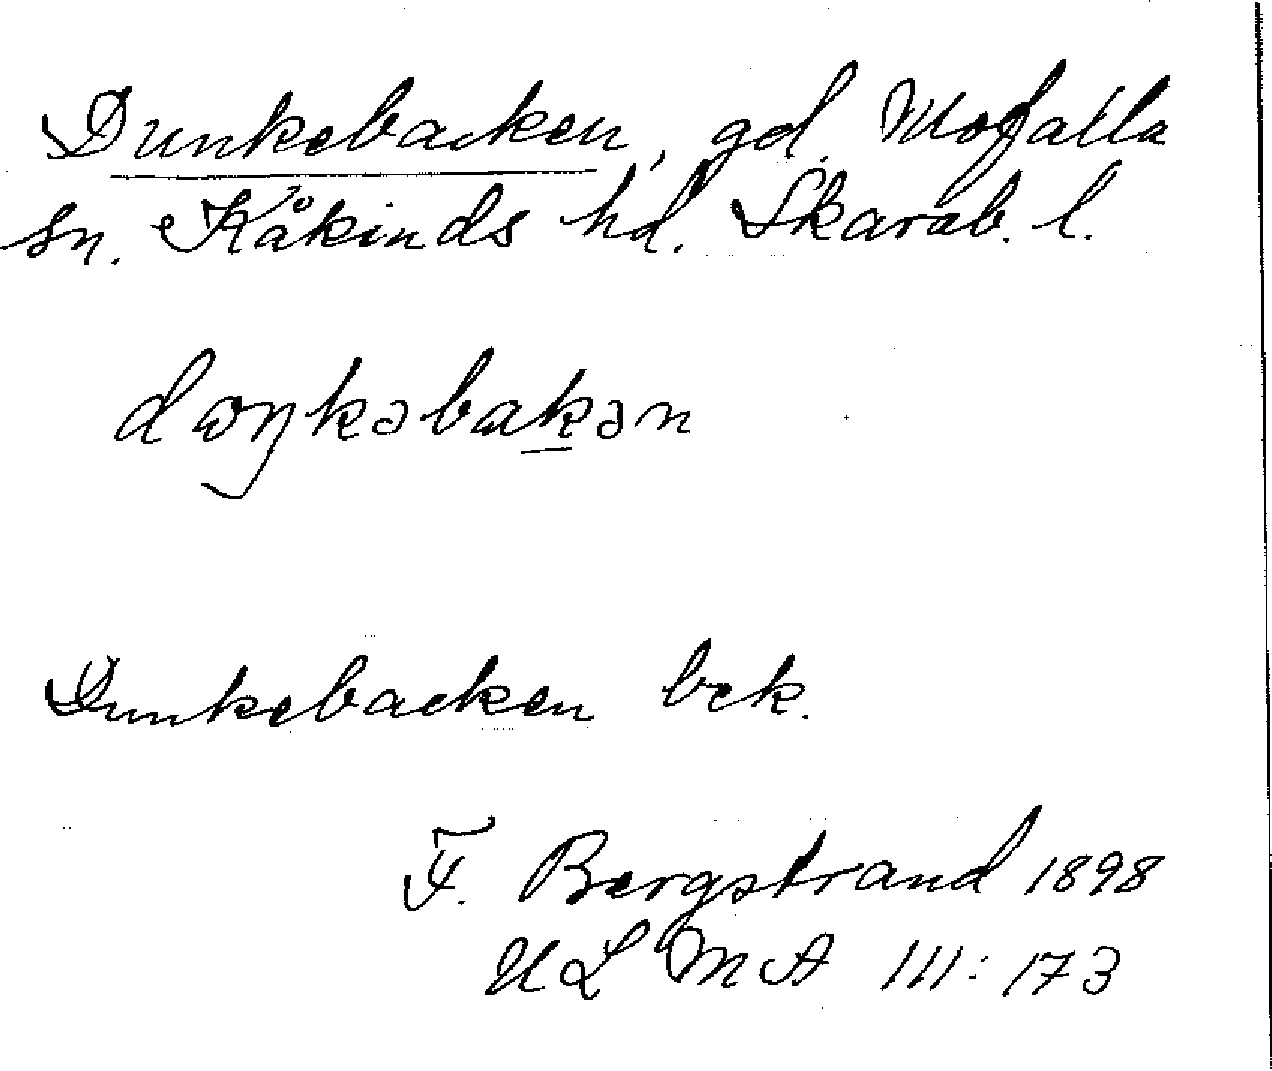 Dunkebacken, gd, Mofalla
sn. Kåkinds hd. Skarab. l.
dωŋkəbakən
Dunkebacken bek.
F. Bergstrand 1898
ULMA 111:173